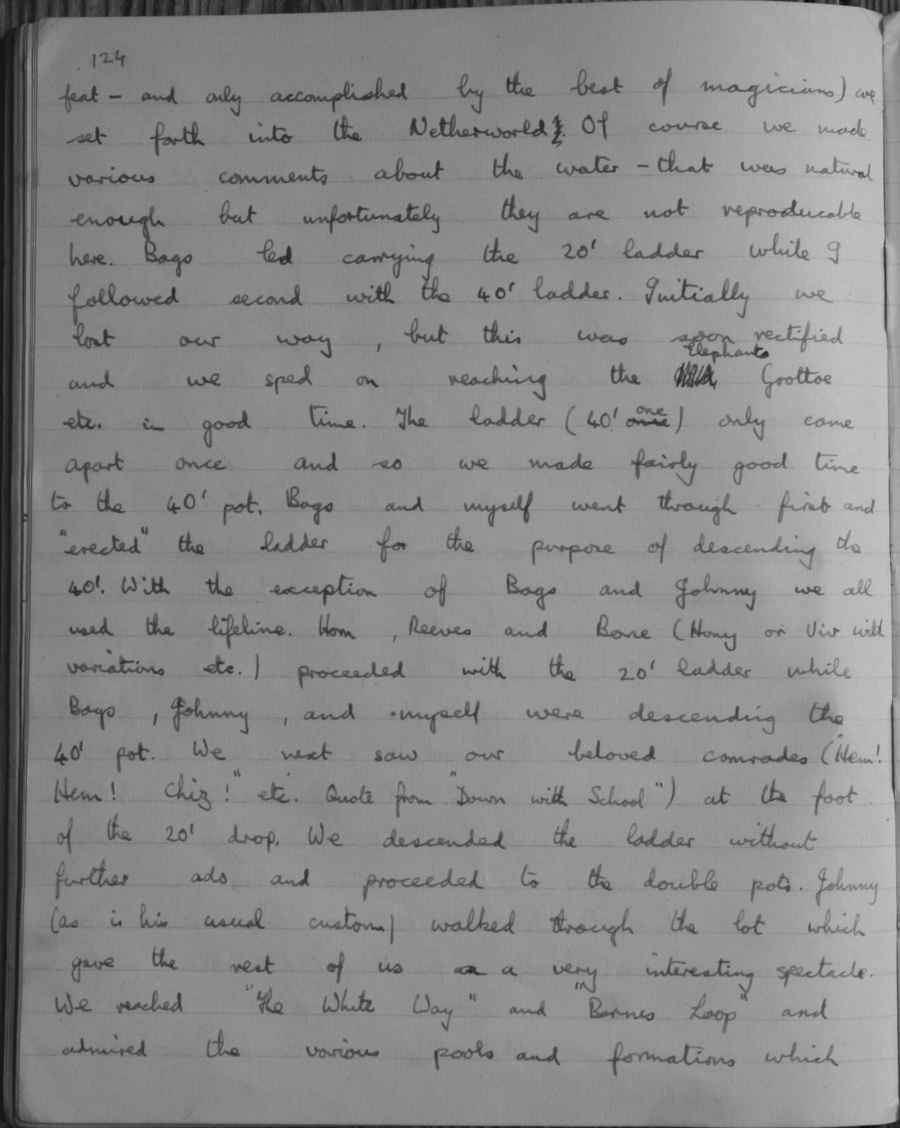 124
feat - and only accomplished by the best of magicians) we
set forth into the Netherworld. Of course we made
various comments about the water - that was natural
enough but unfortunately they are not reproducable
here. Bags led carrying the 20' ladder while I
followed second with the 40' ladder. Initially we
lost our way, but this was soon rectified
and we sped on reaching the Elephants Grottoe
etc. in good time. The ladder (40' one) only came
apart once and so we made fairly good time
to the 40' pot. Bags and myself went through first and
"erected" the ladder for the purpose of descending the
40'. With the exception of Bags and Johnny we all
used the lifeline. Hom, Reeves and Bone (Hony or Viv with
variations etc.) proceeded with the 20' ladder while
Bags, Johnny, and myself were descending the
40' pot. We next saw our beloved comrades ("Hem!
Hem! Chiz!" etc. Quote from "Down with School") at the foot
of the 20' drop. We descended the ladder without
further ado and proceeded to the double pots. Johnny
(as is his usual custom) walked through the lot which
gave the rest of us a very interesting spectacle.
We reached "The White Way" and "Barnes Loop" and
admired the various pools and formations which